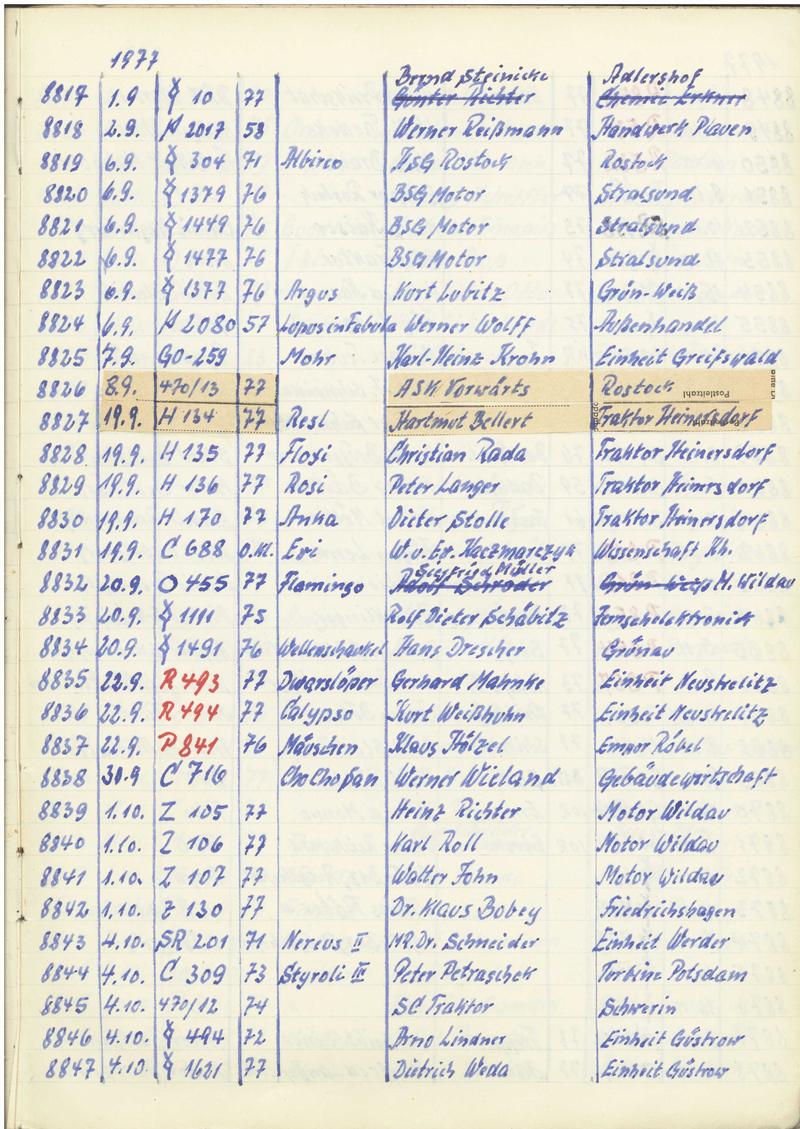 1977
Bernd Steinicke Adlershof
8817 1.9. 10 77 Günter Richter Chemie Erkner
8818 2.9. H 2017 58 Werner Reißmann Handwerk Plauen
8819 6.9. 304 71 Albireo HSG Rostock Rostock
8820 6.9. 1379 76 BSG Motor Stralsund
8821 6.9. 1449 76 BSG Motor Stralsund
8822 6.9. 1477 76 BSG Motor Stralsund
8823 6.9. 1377 76 Argus Kurt Lubitz Grün-Weiß
8824 6.9. H 2080 57 Lupus in Fabula Werner Wolff Außenhandel
8825 7.9. GO-259 Mohr Karl-Heinz Krohn Einheit Greifswald
8826 8.9. 470/13 77 ASK Vorwärts Rostock Postleitzahl
8827 19.9. H 134 77 Resl Hartmut Bellert Traktor Heinersdorf
8828 19.9. H 135 77 Floxi Christian Rada Traktor Heinersdorf
8829 19.9. H 136 77 Rosi Peter Langer Traktor Heinersdorf
8830 19.9. H 170 77 Anka Dieter Stolle Traktor Heinersdorf
8831 19.9. C 688 o.M. Evi W. u. Ev. Kaczmarczyk Wissenschaft Kh.
Siegfried Müller
8832 20.9. O 455 77 Flamingo Adolf Schröder Grün-Weiß M. Wildau
8833 20.9. 1111 75 Rolf Dieter Schäbitz Fernsehelektronik
8834 20.9. 1491 76 Wellenschaukel Hans Drescher Grünau
8835 22.9. R 493 77 Dwarslöper Gerhard Mahnke Einheit Neustrelitz
8836 22.9. R 494 77 Calypso Kurt Weißhuhn Einheit Neustrelitz
8837 22.9. P 841 76 Mäuschen Klaus Hölzel Empor Röbel
8838 30.9 C 716 ChoChoPan Werner Wieland Gebäudewirtschaft
8839 1.10. Z 105 77 Heinz Richter Motor Wildau
8840 1.10. Z 106 77 Karl Roll Motor Wildau
8841 1.10. Z 107 77 Walter John Motor Wildau
8842 1.10. Z 130 77 Dr. Klaus Bobey Friedrichshagen
8843 4.10. SR 201 71 Nereus II MR. Dr. Schneider Einheit Werder
8844 4.10. C 309 73 Styroli III Peter Petraschek Turbine Potsdam
8845 4.10. 470/12 74 SC Traktor Schwerin
8846 4.10. 494 72 Arno Lindner Einheit Güstrow
8847 4.10 1621 77 Dietrich Weda Einheit Güstrow